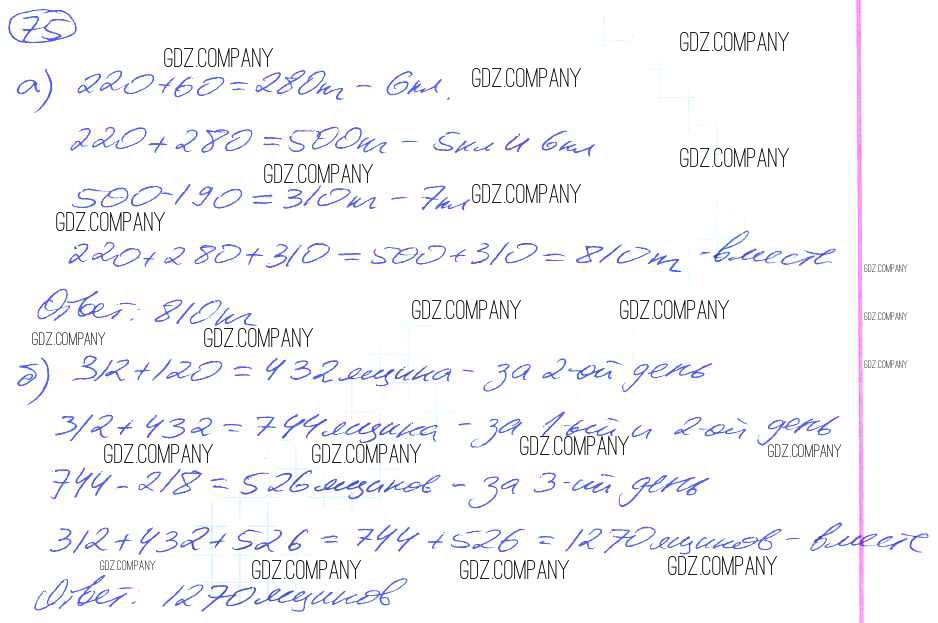 75
GDZ.COMPANY GDZ.COMPANY
а) 220+60=280т - 6кл. GDZ.COMPANY
220+280=500т - 5кл и 6кл
GDZ.COMPANY GDZ.COMPANY
500-190=310т - 7кл GDZ.COMPANY
GDZ.COMPANY
220+280+310=500+310=810т - вместе
GDZ.COMPANY
Ответ: 810т GDZ.COMPANY GDZ.COMPANY GDZ.COMPANY
GDZ.COMPANY GDZ.COMPANY
б) 312+120=432 ящика - за 2-ой день GDZ.COMPANY
312+432=744 ящика - за 1-ый и 2-ой день
GDZ.COMPANY GDZ.COMPANY GDZ.COMPANY GDZ.COMPANY
744-218=526 ящиков - за 3-ий день
312+432+526=744+526=1270 ящиков - вместе
GDZ.COMPANY GDZ.COMPANY GDZ.COMPANY GDZ.COMPANY
Ответ: 1270 ящиков